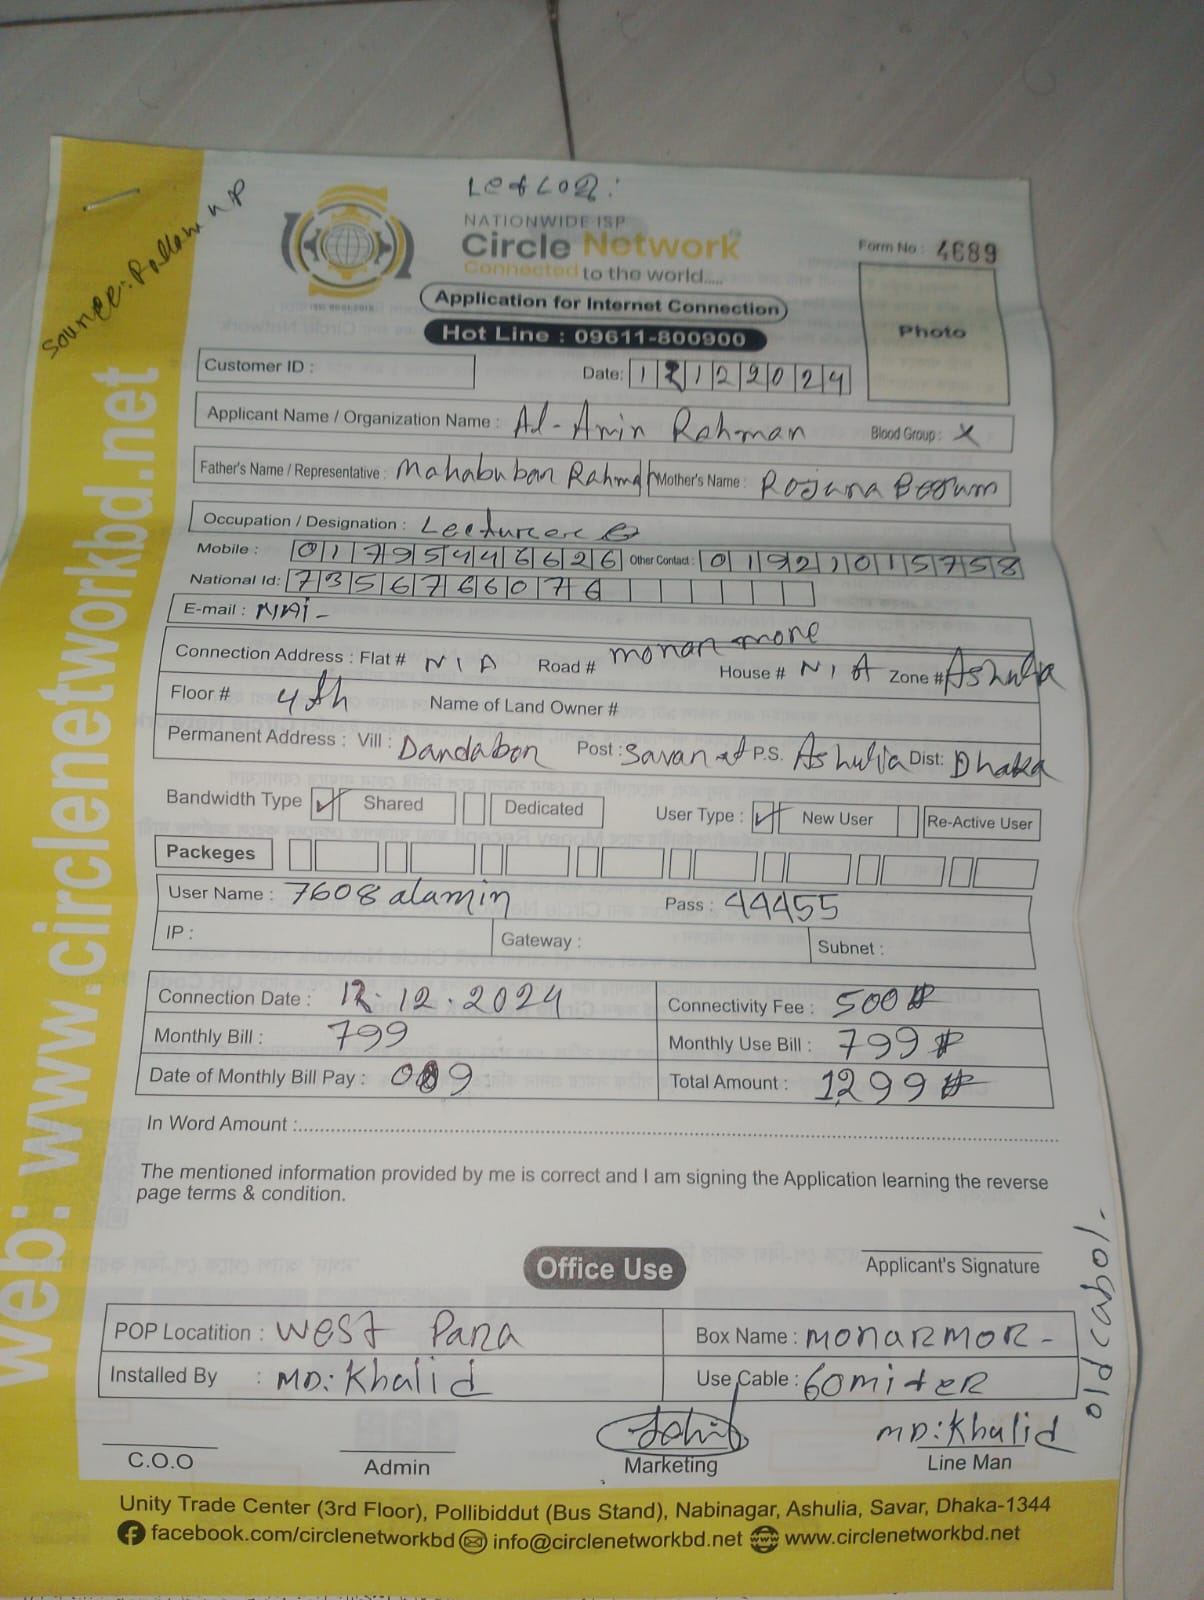 Source: Follow up
NATIONWIDE ISP
Circle Network
Connected to the world.....
Form No : 4689
Application for Internet Connection
Photo
Hot Line : 09611-800900
Customer ID :
Date: 12122024
Applicant Name / Organization Name : Al-Amin Rahman Blood Group : X
Father's Name / Representative : Mahabubar Rahma Mother's Name : Rojuna Begum
Occupation / Designation : Lecturer
Mobile : 01795446626 Other Contact : 01921015758
National Id: 7356766076
E-mail : NAI-
Connection Address : Flat # N/A Road # monar more House # N/A Zone # Ashulia
Floor # 4th Name of Land Owner #
Permanent Address : Vill : Dandabor Post : Savar P.S. Ashulia Dist: Dhaka
Bandwidth Type ✓ Shared Dedicated User Type : ✓ New User Re-Active User
Packeges
User Name : 7608alamin Pass : 44455
IP : Gateway : Subnet :
Connection Date : 12.12.2024 Connectivity Fee : 500
Monthly Bill : 799 Monthly Use Bill : 799
Date of Monthly Bill Pay : 09 Total Amount : 1299
In Word Amount :
The mentioned information provided by me is correct and I am signing the Application learning the reverse
page terms & condition.
Office Use
Applicant's Signature
POP Locatition : West Para Box Name : MONARMOR-
Installed By : MD: Khalid Use Cable : 60miteR
old cabol-
MD: Khalid
C.O.O Admin Marketing Line Man
Unity Trade Center (3rd Floor), Pollibiddut (Bus Stand), Nabinagar, Ashulia, Savar, Dhaka-1344
facebook.com/circlenetworkbd info@circlenetworkbd.net www.circlenetworkbd.net
web: www.circlenetworkbd.net